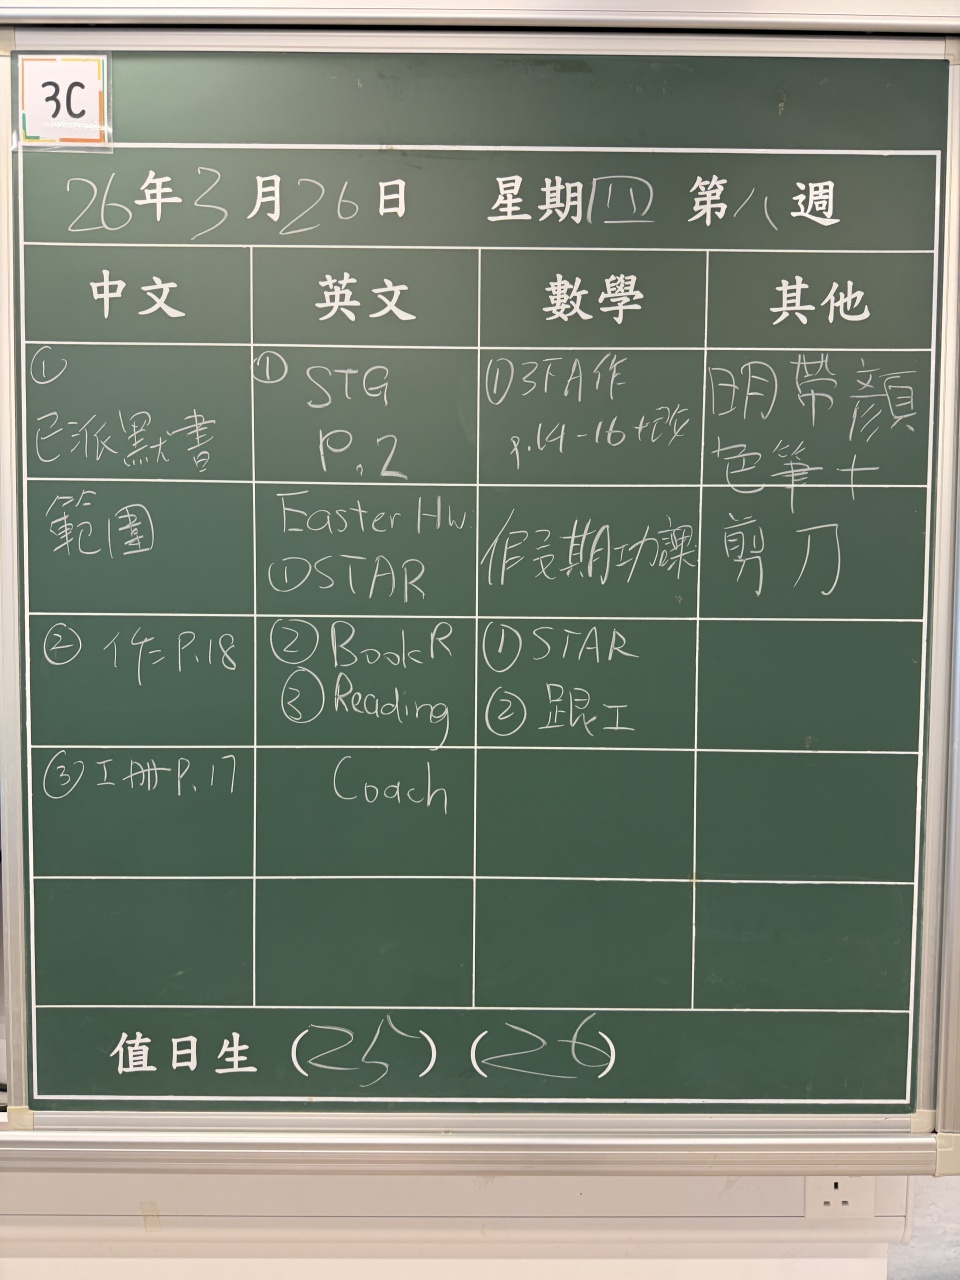 3C
26年3月26日 星期四 第八週
中文 英文 數學 其他
①
已派默書
範圍
② 作二P.18
③工冊P.17
① STG
P.2
Easter Hw:
①STAR
② BookR
③ Reading
Coach
①3FA作
p.14-16+改
假期功課
① STAR
② 跟工
明帶顏
色筆+
剪刀
值日生 (25) (26)